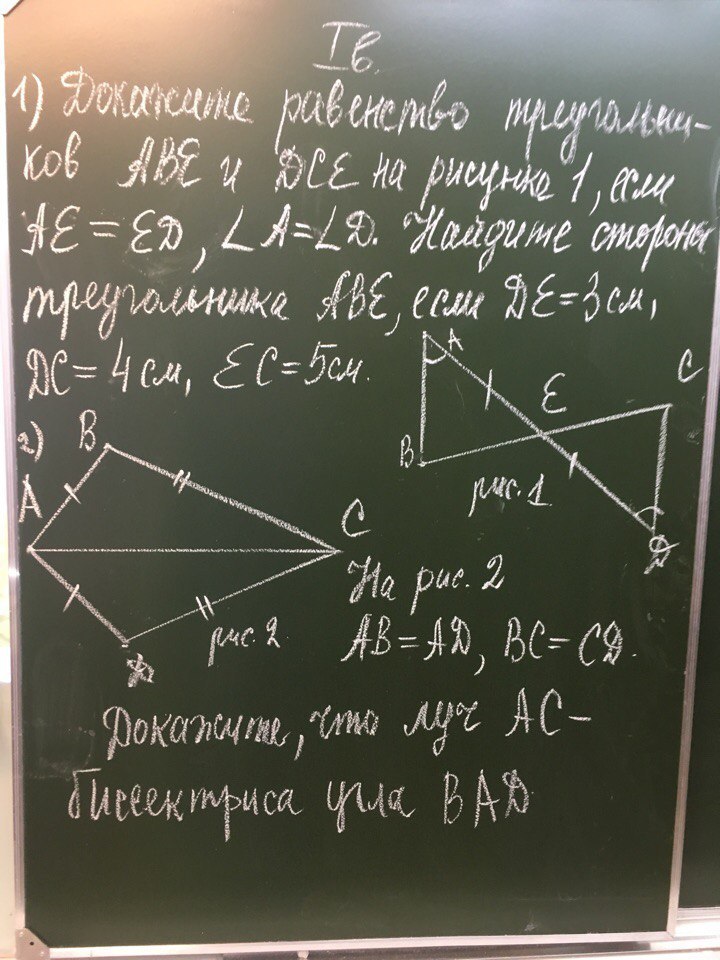 I в.
1) Докажите равенство треугольни-
ков ABE и DCE на рисунке 1, если
AE = ED, ∠A=∠D. Найдите стороны
треугольника ABE, если DE=3 см,
DC = 4 см, EC=5см.
A
E
C
B
рис. 1
D
2)
B
A
C
D
рис. 2
На рис. 2
AB=AD, BC=CD.
Докажите, что луч AC –
биссектриса угла BAD